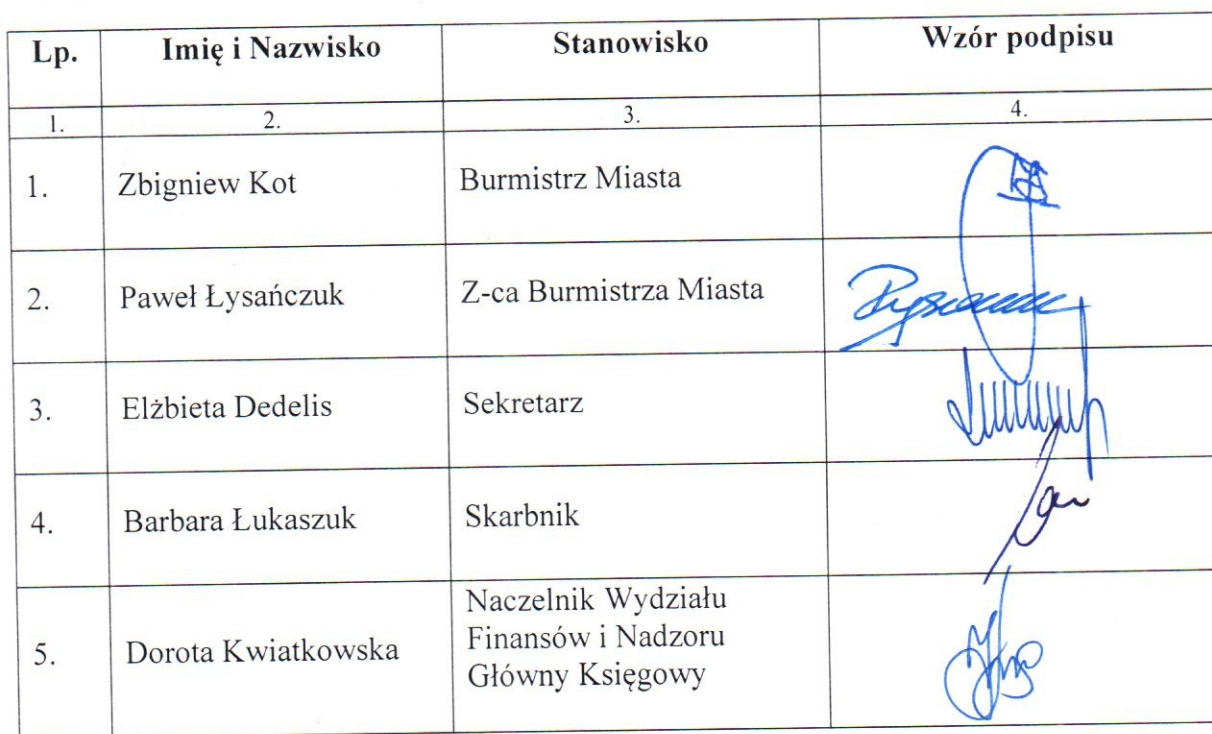 Lp. Imię i Nazwisko Stanowisko Wzór podpisu
1. 2. 3. 4.
1. Zbigniew Kot Burmistrz Miasta
2. Paweł Łysańczuk Z-ca Burmistrza Miasta
3. Elżbieta Dedelis Sekretarz
4. Barbara Łukaszuk Skarbnik
Naczelnik Wydziału
5. Dorota Kwiatkowska Finansów i Nadzoru
Główny Księgowy